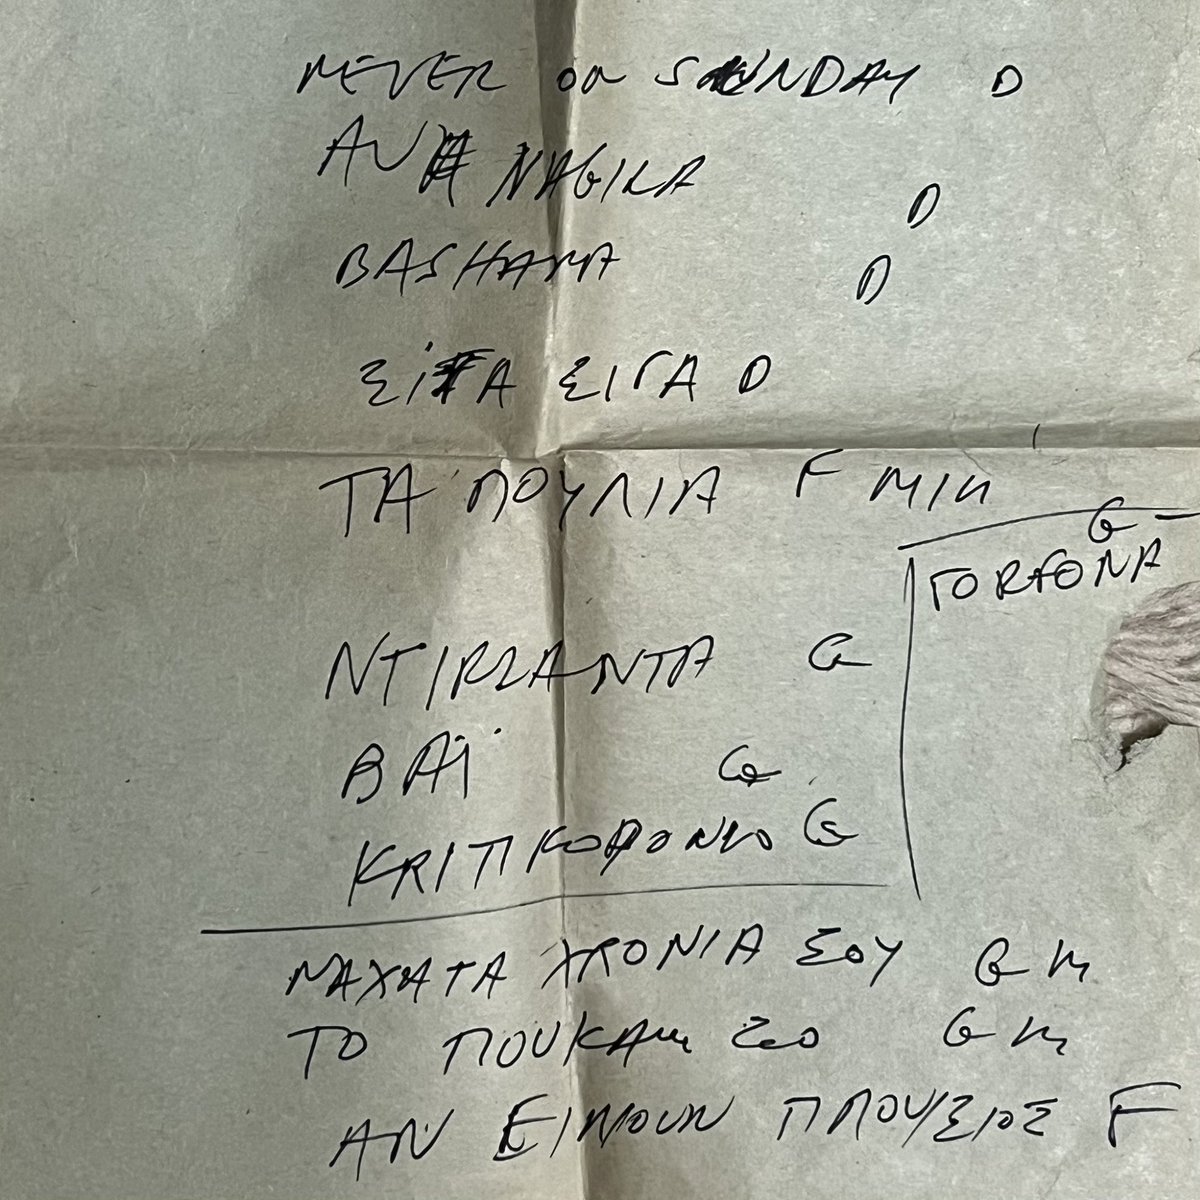 NEVER ON SUNDAY D
AVA NAGILA D
BASHANA D
ΣΙΓΑ ΣΙΓΑ D
ΤΑ ΠΟΥΛΙΑ F MIN
G -
ΓΟRΓΟΝΑ
ΝΤΙRΛΑΝΤΑ G
ΒΑΪ G
ΚRΙΤΙΚΟ G
ΝΑΧΑ ΤΑ ΧRΟΝΙΑ ΣΟΥ G m
ΤΟ G m
ΑΝ ΕΙΜΟΥΝ ΠΛΟΥΣΙΟΣ F